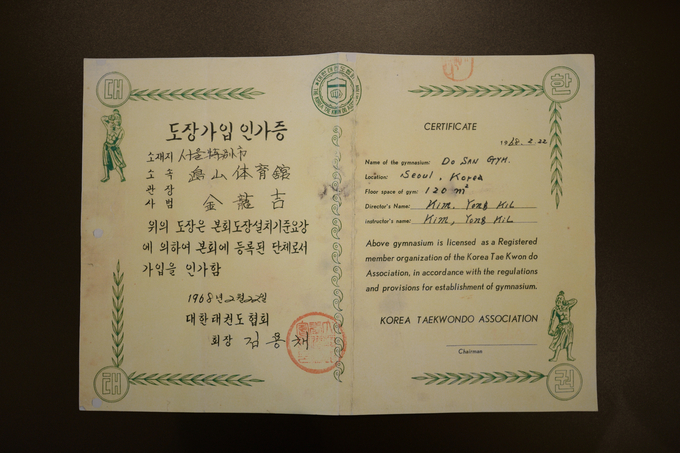 대
한
도장가입인가증
소재지 서울特別市
소속 島山体育館
관장
사범 金龍吉
위의 도장은 본회도장설치기준요강
에 의하여 본회에 등록된 단체로서
가입을 인가함
1968년 2월 22일
대한태권도협회
회장 김용채
태
CERTIFICATE
1968. 2. 22
Name of the gymnasium: DO SAN GYM.
Location: Seoul, Korea
Floor space of gym: 120 m²
Director's Name: KIM, YONG KIL
instructor's name: KIM, YONG KIL
Above gymnasium is licensed as a Registered
member organization of the Korea Tae Kwon do
Association, in accordance with the regulations
and provisions for establishment of gymnasium.
KOREA TAEKWONDO ASSOCIATION
Chairman
권